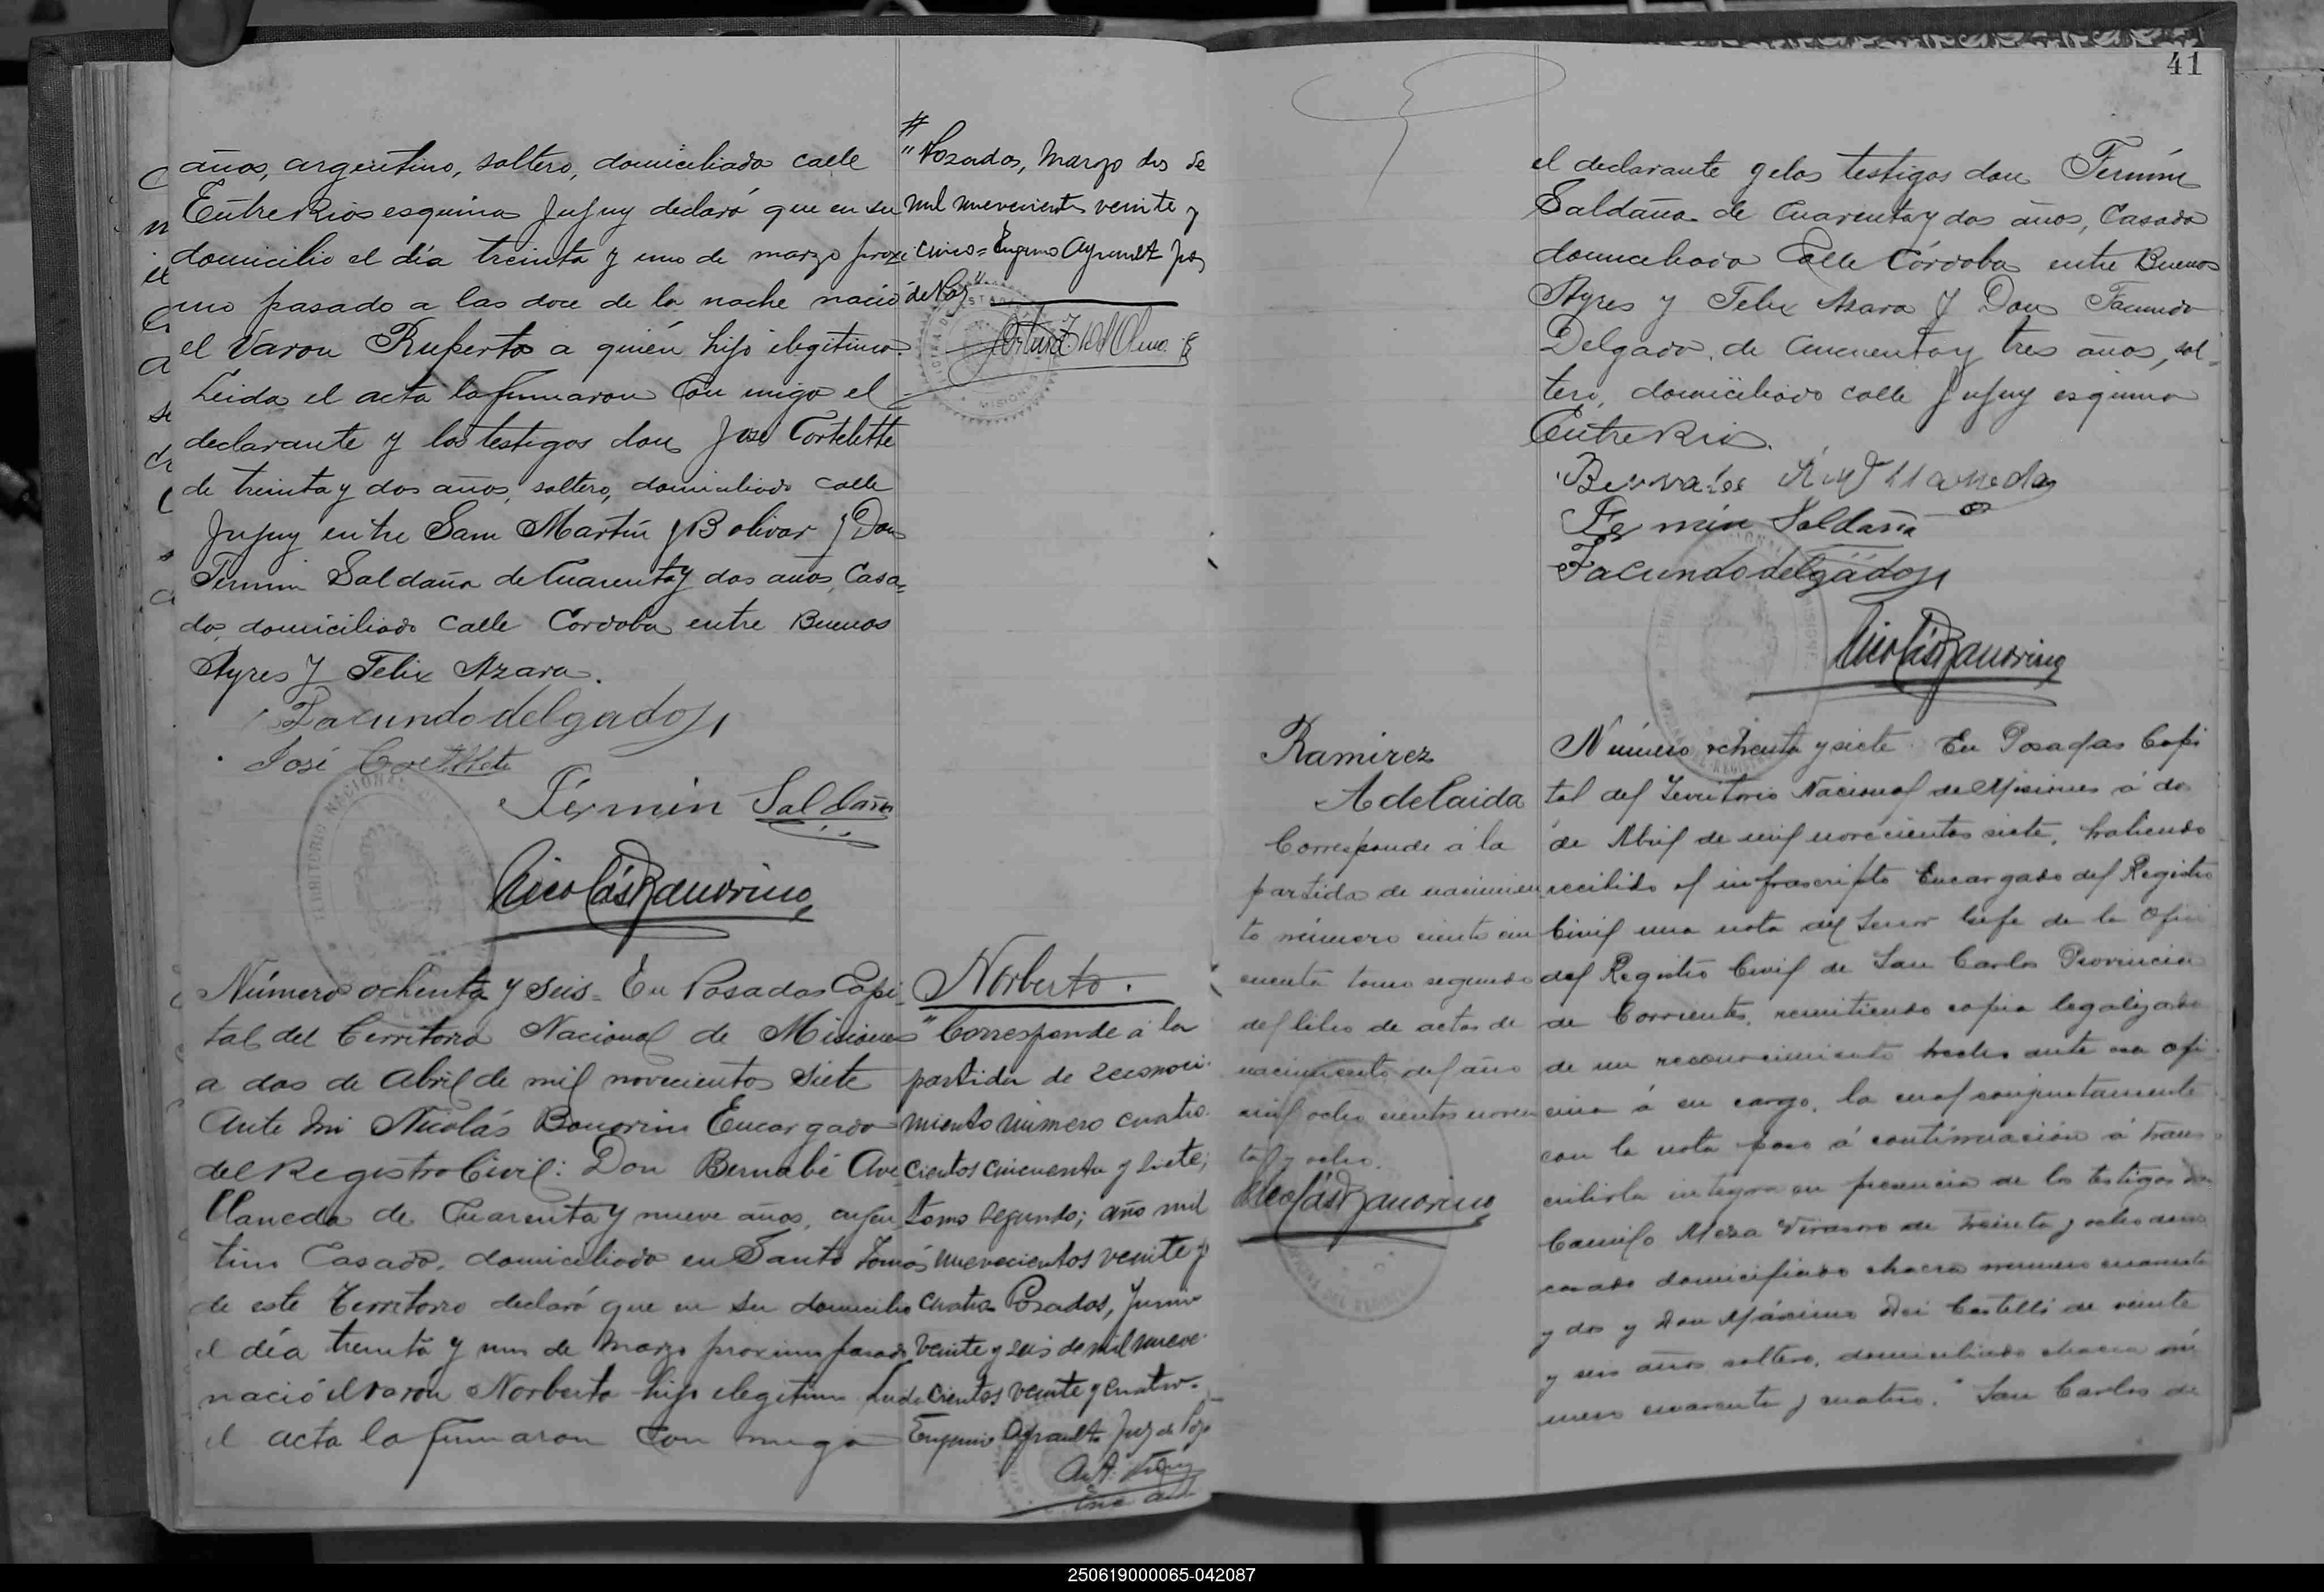 años, argentino, soltero, domiciliado calle
Entre Rios esquina Jujuy declaró que en su
domicilio el día treinta y uno de marzo proxi
mo pasado a las doce de la noche nació
el varon Ruperto a quién hijo ilegitimo.
Leida el acta la firmaron con migo el
declarante y los testigos don José Cortelette
de treinta y dos años, soltero, domiciliado calle
Jujuy entre San Martín y Bolivar y Don
Fermin Saldaña de Cuarenta y dos años, Casa=
do, domiciliado calle Cordoba entre Buenos
Ayres y Felix Azara.
Facundo delgado
José
Fermin Saldaña
Nicolás Bonorino
#
"Posadas, Marzo dos de
mil novecientos veinte y
cinco = Eugenio Ayrault Juez
de Paz"
Número ochenta y seis = En Posadas Capi
tal del Territorio Nacional de Misiones
a dos de Abril de mil novecientos siete
Ante mi Nicolás Bonorino Encargado
del Registro Civil: Don Bernabé Ave
llaneda de Cuarenta y nueve años, argen
tino Casado, domiciliado en Santo Tomás
de este Territorio declaró que en su domicilio
el día treinta y uno de Marzo proximo pasado
nació el varon Norberto hijo ilegitimo Leida
el acta la firmaron con migo
Norberto.
"Corresponde á la
partida de reconoci-
miento número cuatro-
cientos cincuenta y siete;
tomo segundo; año mil
nuevecientos veinte y
cuatro Posadas, Junio
veinte y seis de mil nueve-
cientos veinte y cuatro.
Eugenio Ayrault Juez de Paz
41
el declarante y los testigos don Fermín
Saldaña de Cuarenta y dos años, Casado
domiciliado Calle Córdoba entre Buenos
Ayres y Felix Azara y Don Facundo
Delgado, de cincuenta y tres años, sol=
tero, domiciliado calle Jujuy esquina
Entre Rios.
Bernabé Avellaneda
Fermin Saldaña
Facundo delgado
Nicolás Bonorino
Ramirez
Adelaida
Corresponde á la
partida de nacimien
to número ciento cin
cuenta tomo segundo
del libro de actas de
nacimiento del año
mil ocho cientos noven
ta y ocho.
Nicolás Bonorino
Número ochenta y siete. En Posadas Capi
tal del Territorio Nacional de Misiones á dos
de Abril de mil novecientos siete, habiendo
recibido el infrascripto Encargado del Registro
Civil una nota del Señor Gefe de la Ofici
del Registro Civil de San Carlos Provincia
de Corrientes, remitiendo copia legalizada
de un reconocimiento hecho ante esa ofi
cina á su cargo, la cual conjuntamente
con la nota paso á continuación á trans
cribirla integra en presencia de los testigos Don
Camilo Meza Virasoro de treinta y ocho años
casado domiciliado chacra numero cuarenta
y dos y Don Máximo Dei Castelli de veinte
y seis años soltero, domiciliado chacra nú
mero cuarenta y cuatro. "San Carlos de
250619000065-042087